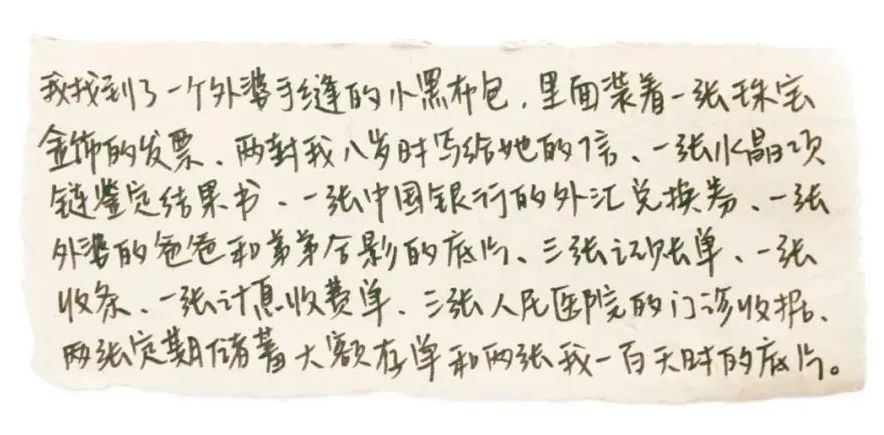 我找到了一个外婆手缝的小黑布包，里面装着一张珠宝
金饰的发票、两封我八岁时写给她的信、一张水晶项
链鉴定结果书、一张中国银行的外汇兑换券、一张
外婆的爸爸和弟弟合影的底片、三张记账单、一张
收条、一张计息收费单、三张人民医院的门诊收据、
两张定期储蓄大额存单和两张我一百天时的底片。